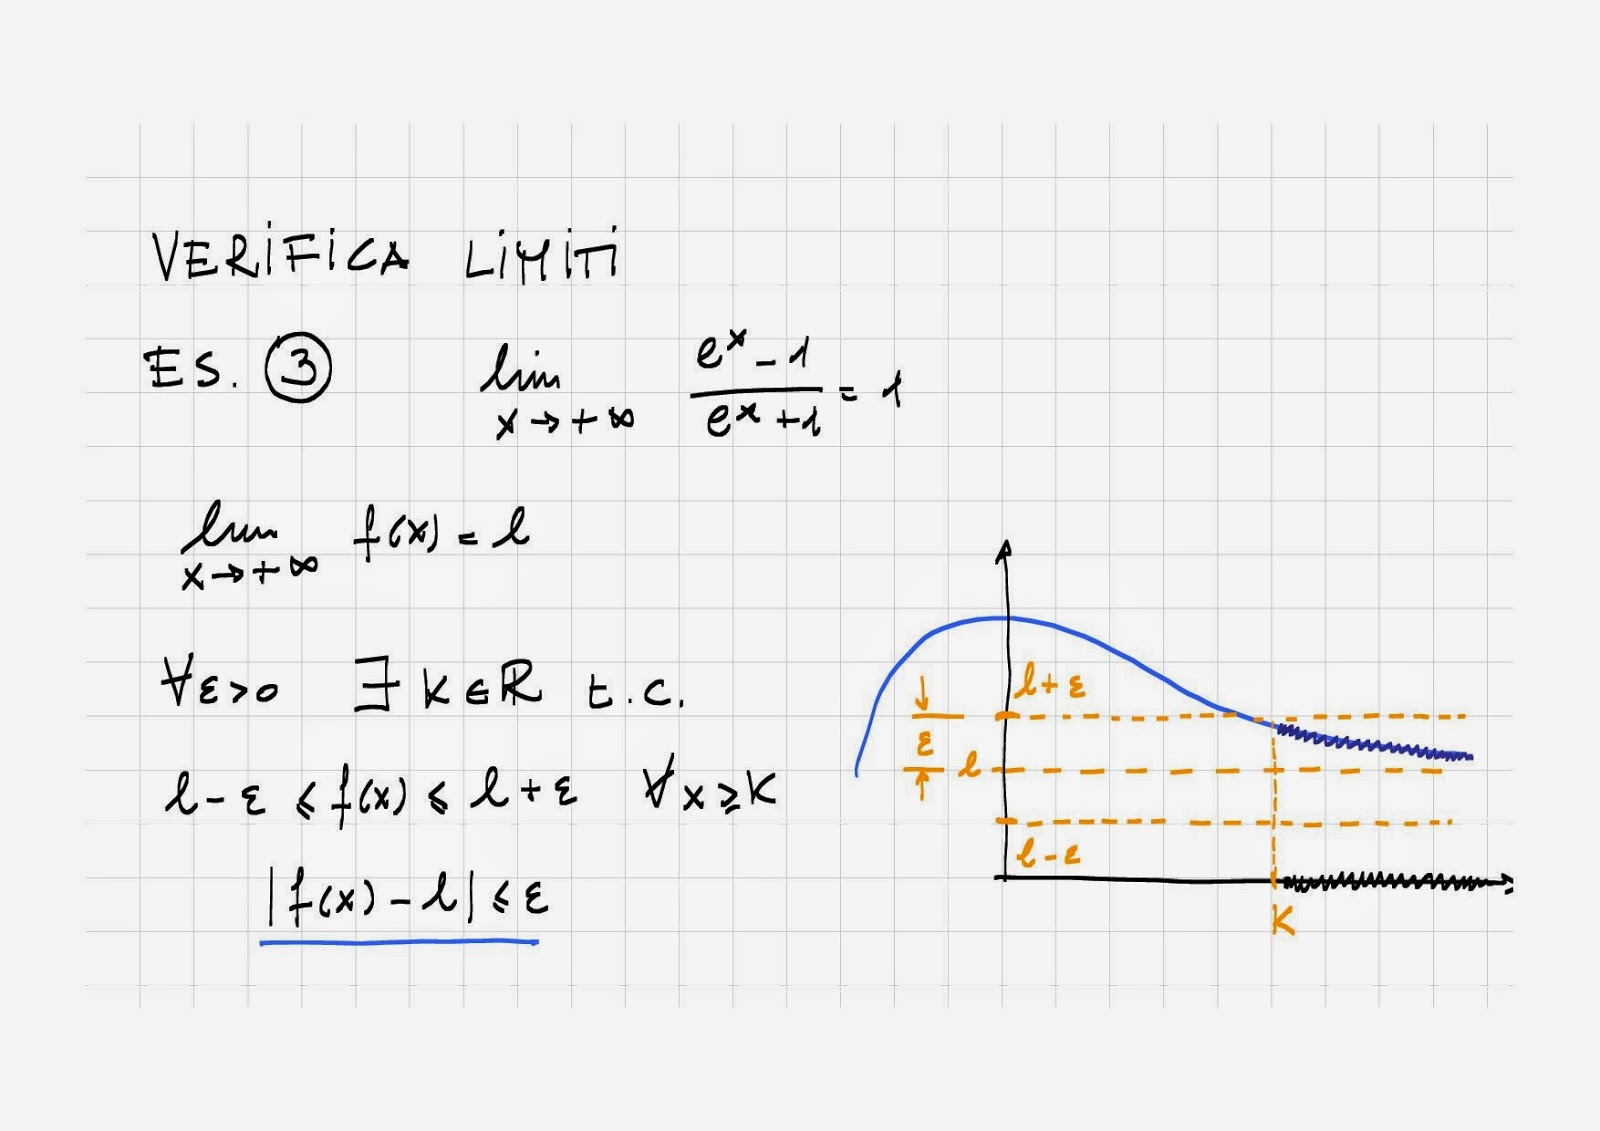 VERIFICA LIMITI
ES. ③ lim x→+∞ (e^x - 1)/(e^x + 1) = 1
lim x→+∞ f(x) = l
∀ε>0 ∃ K∈R t.c.
l-ε ⩽ f(x) ⩽ l+ε ∀x⩾K
|f(x) - l| ⩽ ε
l+ε
ε
l
l-ε
K